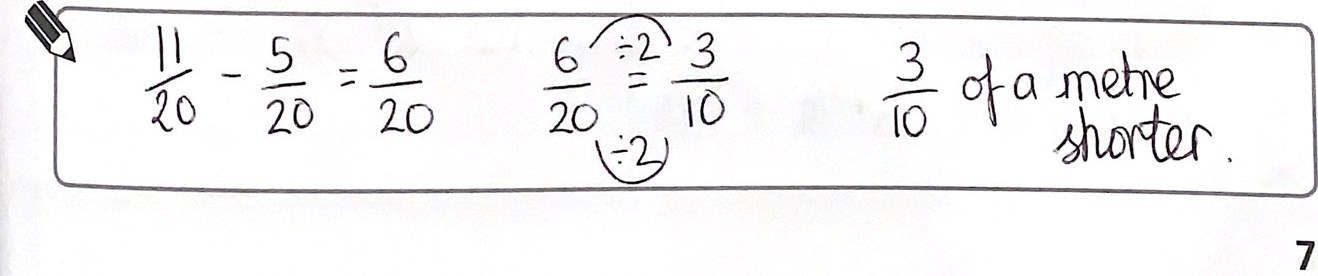 11/20 - 5/20 = 6/20    6/20 = 3/10    3/10 of a metre
÷2
÷2
shorter.
7